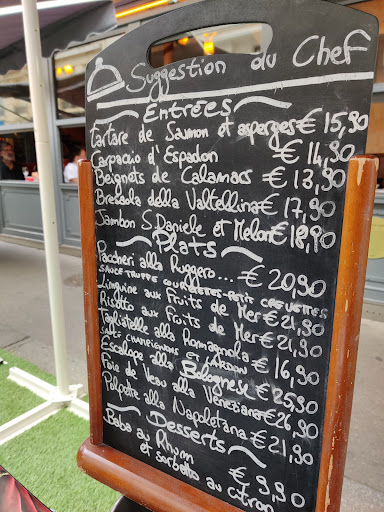 Suggestion du Chef
Entrées
Tartare de Saumon et asperges € 15,90
Carpaccio d'Espadon € 14,90
Beignets de Calamars € 13,90
Bresaola della Valtellina € 17,90
Jambon S. Daniele et Melon € 18,90
Plats
Paccheri alla Ruggero... € 20,90
SAUCE TRUFFE COURGETTES PETIT CREVETTES
Linguine aux Fruits de Mer € 21,90
Risotto aux Fuits de Mer € 21,90
Tagliatelle alla Romagnola € 16,90
CHAMPIGNONS ET LARDON
Escalope alla Bolognese € 25,90
Foie de Veau alla Veneziana € 26,90
Polpette alla Napoletana € 21,90
Desserts
Baba au Rhum € 9,90
et sorbetto au citron